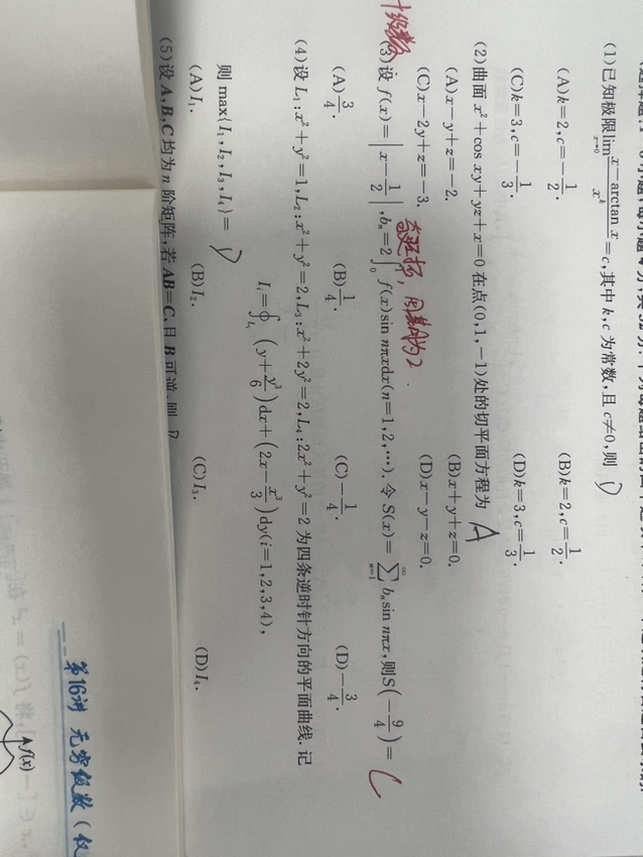 (1)已知极限lim_{x→0} (x−arctan x)/x^k=c,其中 k,c 为常数,且 c≠0,则 D
(A)k=2,c=−1/2. (B)k=2,c=1/2.
(C)k=3,c=−1/3. (D)k=3,c=1/3.
(2)曲面 x²+cos xy+yz+x=0 在点(0,1,−1)处的切平面方程为 A
(A)x−y+z=−2. (B)x+y+z=0.
(C)x−2y+z=−3. (D)x−y−z=0.
级数
奇延拓, 周期为2.
(3)设 f(x)=|x−1/2|,bₙ=2∫₀¹ f(x)sin nπxdx(n=1,2,…).令 S(x)=∑_{n=1}^∞ bₙsin nπx,则S(−9/4)= C
(A)3/4. (B)1/4. (C)−1/4. (D)−3/4.
(4)设 L₁:x²+y²=1,L₂:x²+y²=2,L₃:x²+2y²=2,L₄:2x²+y²=2 为四条逆时针方向的平面曲线.记
Iᵢ=∮_{Lᵢ}(y+y³/6)dx+(2x−x³/3)dy(i=1,2,3,4),
则 max{I₁,I₂,I₃,I₄}= D
(A)I₁. (B)I₂. (C)I₃. (D)I₄.
(5)设 A,B,C 均为 n 阶矩阵,若 AB=C,且 B 可逆,则
第16讲 无穷级数(仅
f(x)